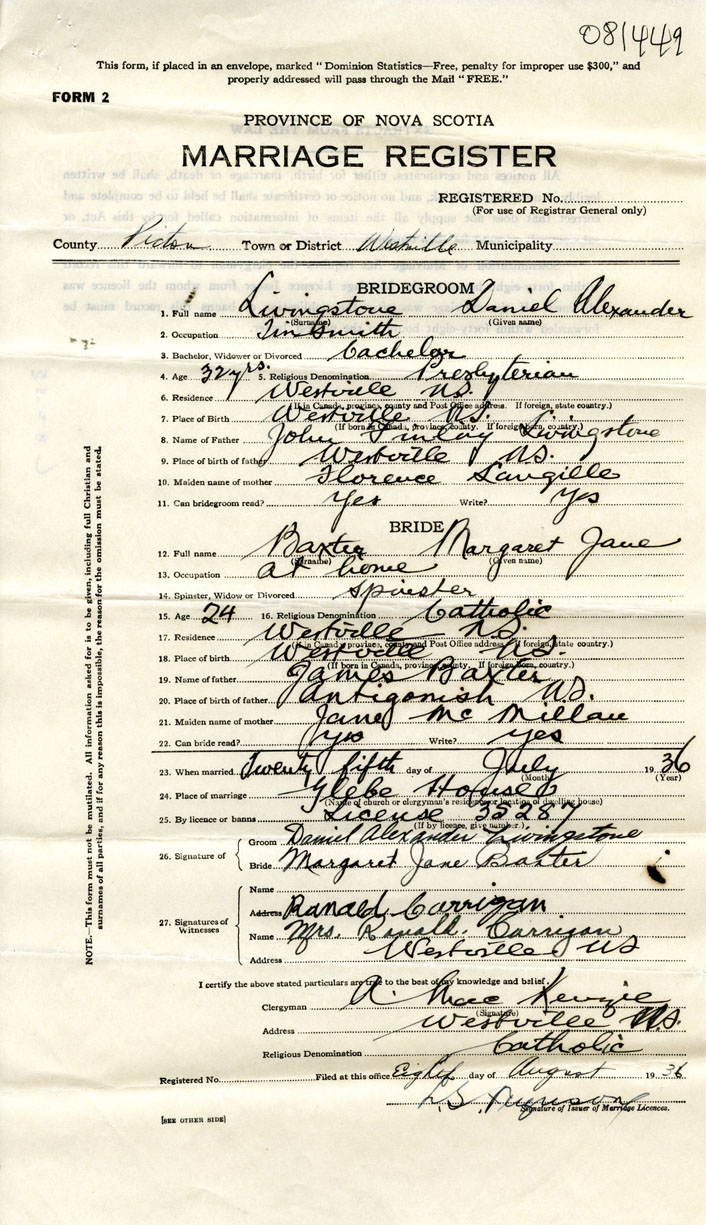 081449
This form, if placed in an envelope, marked "Dominion Statistics—Free, penalty for improper use $300," and
properly addressed will pass through the Mail "FREE."
FORM 2
PROVINCE OF NOVA SCOTIA
MARRIAGE REGISTER
REGISTERED No.
(For use of Registrar General only)
County Pictou Town or District Westville Municipality
BRIDEGROOM
1. Full name Livingstone Daniel Alexander
(Surname) (Given name)
2. Occupation Tin Smith
3. Bachelor, Widower or Divorced bachelor
4. Age 32 yrs. 5. Religious Denomination Presbyterian
6. Residence Westville N.S.
(If in Canada, province, county and Post Office address. If foreign, state country.)
7. Place of Birth Westville N.S.
(If born in Canada, province, county. If foreign born, country.)
8. Name of Father John Finlay Livingstone
9. Place of birth of father Westville N.S.
10. Maiden name of mother Florence Langille
11. Can bridegroom read? Yes Write? Yes
BRIDE
12. Full name Baxter Margaret Jane
(Surname) (Given name)
13. Occupation at home
14. Spinster, Widow or Divorced spinster
15. Age 24 16. Religious Denomination Catholic
17. Residence Westville N.S.
(If in Canada, province, county and Post Office address. If foreign, state country.)
18. Place of birth Westville N.S.
(If born in Canada, province, county. If foreign born, country.)
19. Name of father James Baxter
20. Place of birth of father Antigonish N.S.
21. Maiden name of mother Jane Mc Millan
22. Can bride read? Yes Write? yes
23. When married Twenty fifth day of July 1936
(Month) (Year)
24. Place of marriage Glebe House
(Name of church or clergyman's residence or location of dwelling house)
25. By licence or banns License 35287
(If by licence, give number.)
26. Signature of
Groom Daniel Alexander Livingstone
Bride Margaret Jane Baxter
27. Signatures of Witnesses
Name
Address Ranald Carrigan
Name Mrs. Ranald Carrigan
Address Westville NS
I certify the above stated particulars are true to the best of my knowledge and belief.
Clergyman R. MacKenzie
(Signature)
Address Westville N.S.
Religious Denomination Catholic
Registered No. Filed at this office Eight day of August 1936
Signature of Issuer of Marriage Licences.
[SEE OTHER SIDE]
NOTE.—This form must not be mutilated. All information asked for is to be given, including full Christian and
surnames of all parties, and if for any reason this is impossible, the reason for the omission must be stated.